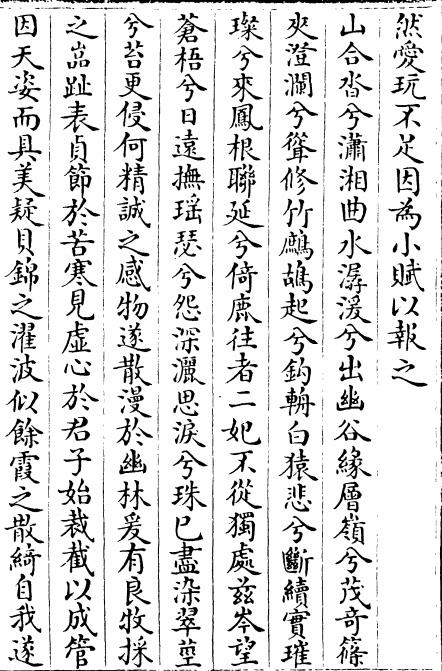 然愛玩不足因為小賦以報之
山合沓兮瀟湘曲水潺湲兮出幽谷緣層嶺兮茂奇篠
夾澄瀾兮聳修竹鷓鴣起兮鈎輈白猿悲兮斷續實璀
璨兮來鳳根聯延兮倚鹿往者二妃不從獨處茲岑望
蒼梧兮日遠撫瑶瑟兮怨深灑思淚兮珠已盡染翠莖
兮苔更侵何精誠之感物遂散漫於幽林爰有良牧採
之嵓趾表貞節於苦寒見虛心於君子始裁截以成管
因天姿而具美疑貝錦之濯波似餘霞之散綺自我遂